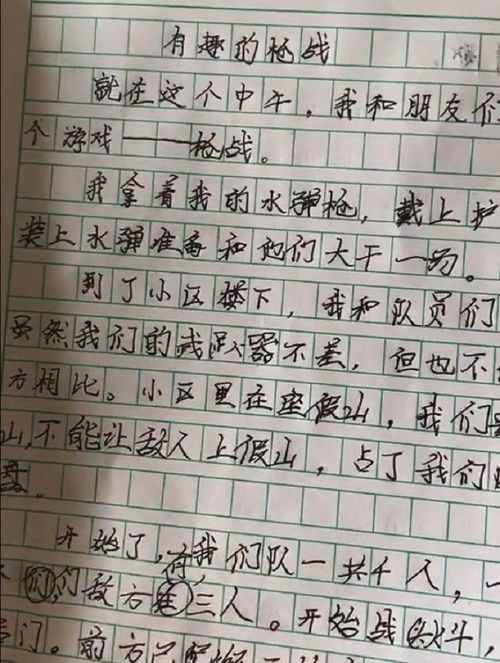 有趣的枪战
就在这个中午，我和朋友们
个游戏——枪战。
我拿着我的水弹枪，戴上护
装上水弹准备和他们大干一场。
到了小区楼下，我和队员们
虽然我们的武器不差，但也不
方相比。小区里在座假山，我们
山，不能让敌人上假山，占了我们
盘。
开始了，有我们队一共千人，一
们敌方三人。开始战斗，
门。前方